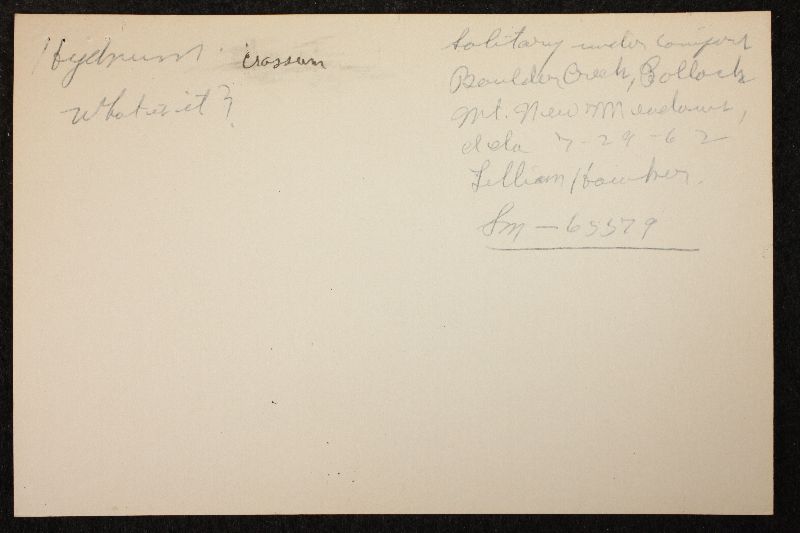 Hydnum crassum
What is it?
Solitary under conifers
Boulder Creek, Pollock
Mt. New Meadows,
Ida 7-29-62
Lillian Hawker.
Sm - 65579